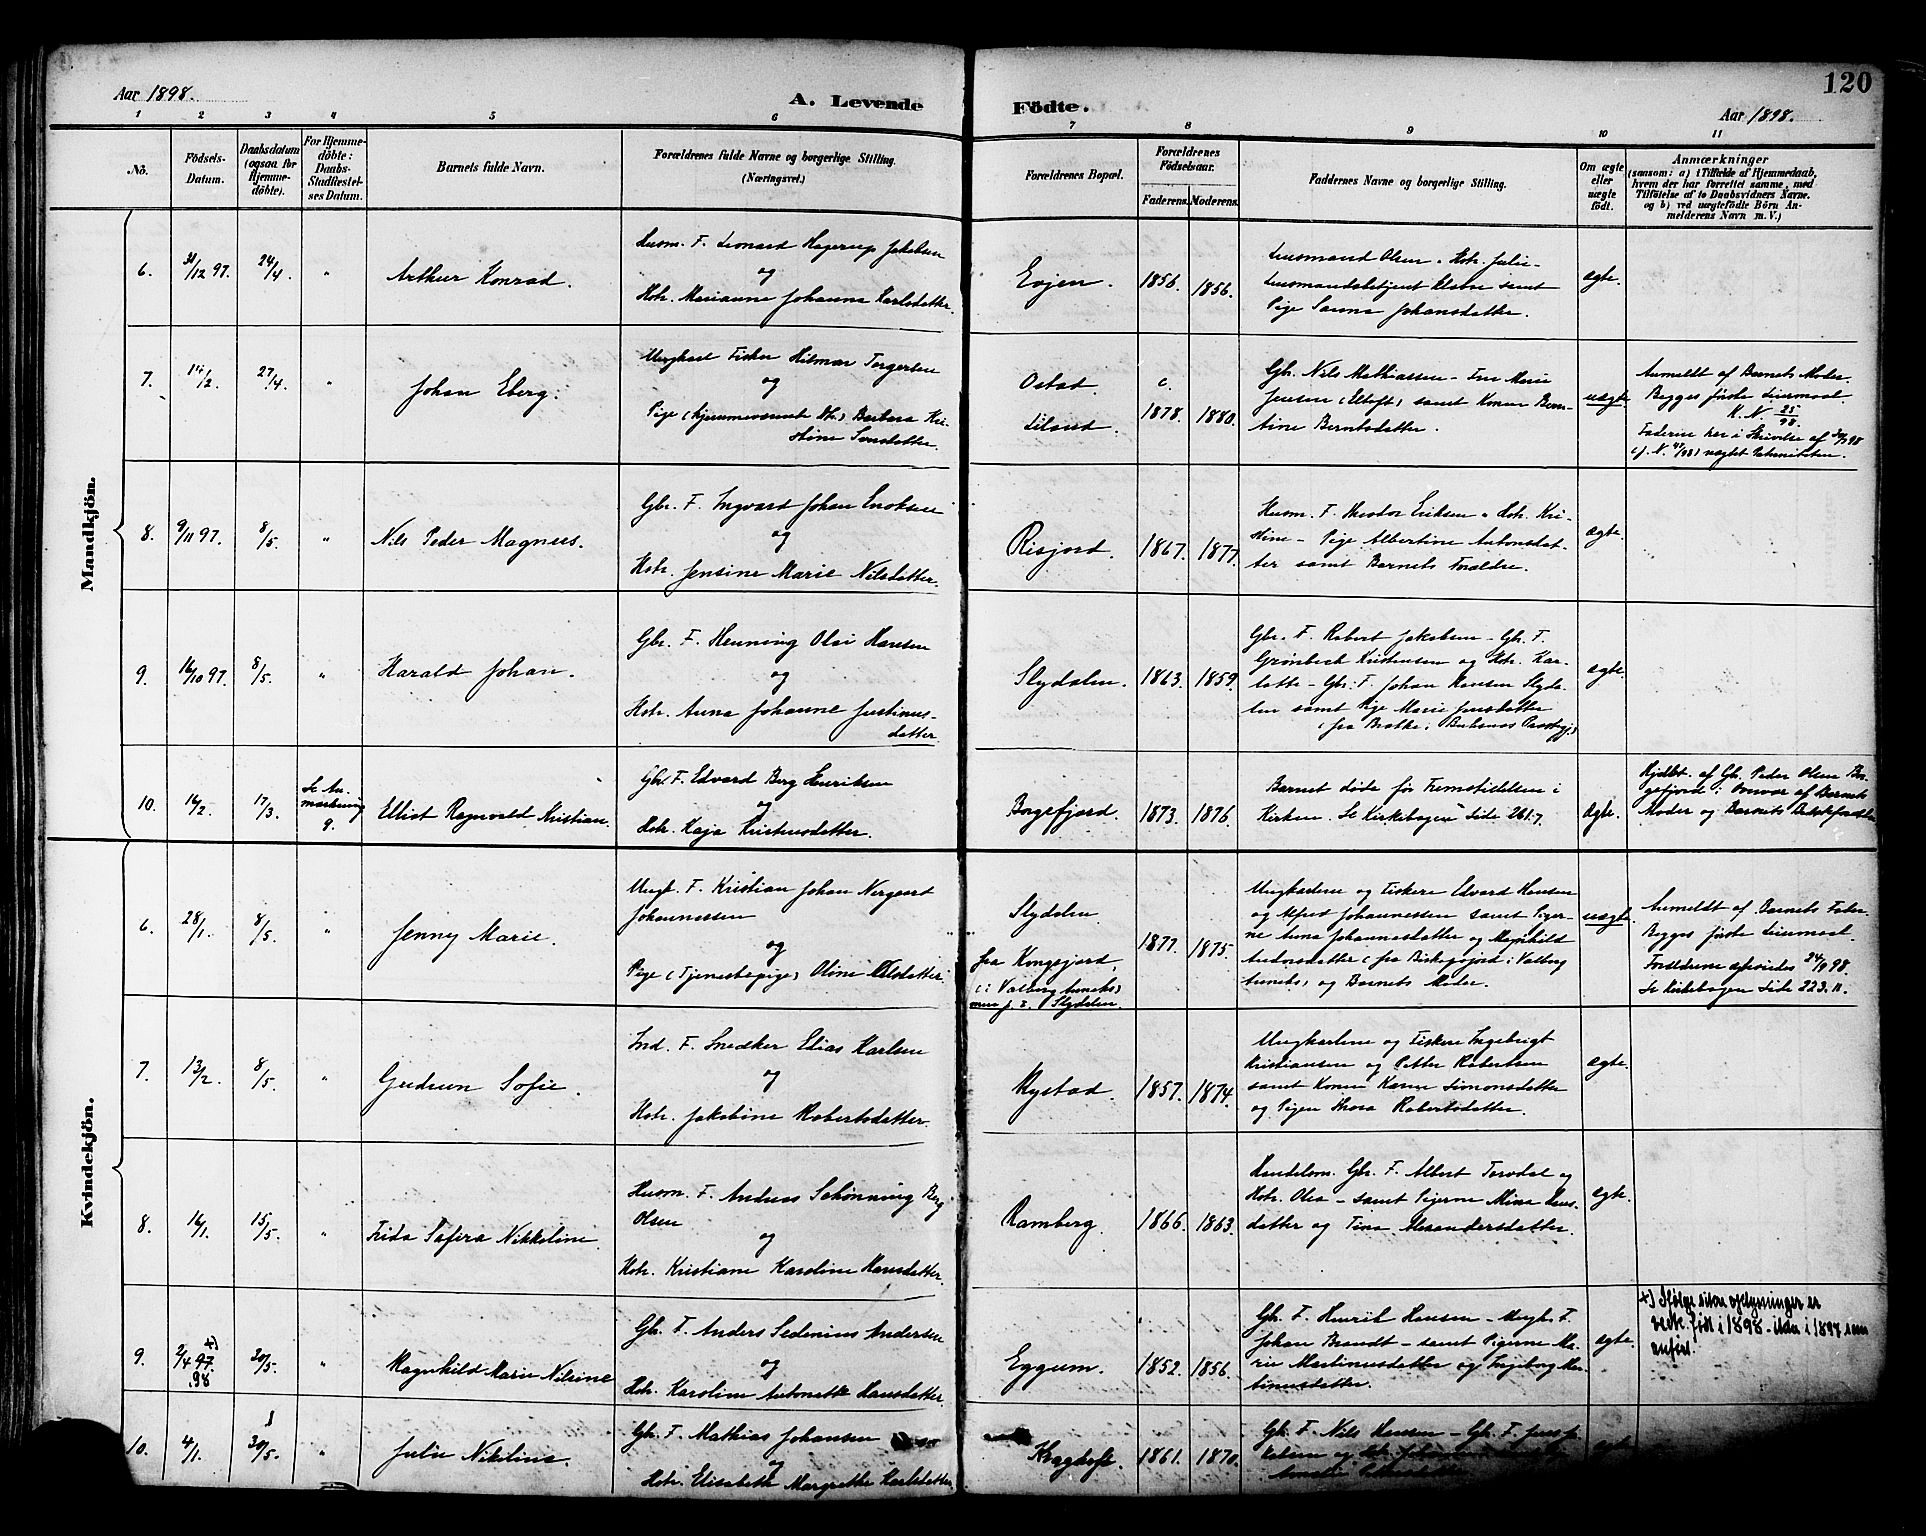 Aar 1898.
A. Levende Födte.
120
Aar 1898.
1 2 3 4 5 6 7 8 9 10 11
No.
Födsels-
Datum.
Daabsdatum
(ogsaa for
Hjemme-
döbte).
For Hjemme-
döbte:
Daabs-
Stadfæstel-
ses Datum.
Barnets fulde Navn.
Forældrenes fulde Navne og borgerlige Stilling.
(Næringsvei.)
Forældrenes Bopæl.
Forældrenes
Födselsaar.
Faderens. Moderens.
Faddernes Navne og borgerlige Stilling.
Om ægte
eller
uægte
födt.
Anmærkninger
(saasom: a) i Tilfælde af Hjemmedaab,
hvem der har forrettet samme, med
Tilföielse af to Daabsvidners Navne,
og b) ved uægtefödte Börn An-
melderens Navn m. V.)
Mandkjön.
6.
31/12 97.
24/4.
"
Arthur Konrad.
Husm. F. Leonard Hagerup Jakobsen
og
Hstr. Marianne Johanna Karlsdatter.
Evjen.
1856.
1856.
Lensmand Olsen. Hstr. Julie-
Lensmandsbetjent samt
Pige Sanna Johansdatter.
ægte.
7.
14/2.
27/4.
"
Johan Eberg.
Ungkarl Fisker Hilmar Torgersen
og
Pige (hjemmeværende Dtr.) Barbara Kri-
stine Sensdatter.
Ostad
Liland.
c.
1878.
1880.
Gbr. Nils Mathiassen - Fru Marie
Jensen (Eltoft) samt Konen Bern-
tine Berntsdatter.
uægte.
Anmeldt af Barnets Moder.
Begges første Leiermaal.
K. N. 25/98.
Faderen her i Skrivelse af
(j. N. 47/98) nægtet Paterniteten.
8.
9/11 97.
8/5.
"
Nils Peder Magnus.
Gbr. F. Ingvard Johan Enoksen
og
Hstr. Jensine Marie Nilsdatter.
Risjord.
1867.
1877.
Husm. F. Theodor Eriksen. Hstr. Kri-
stine - Pige Albertine Antonsdat-
ter samt Barnets Forældre.
ægte.
9.
16/10 97.
8/5.
"
Harald Johan.
Gbr. F. Henning Olai Hansen
og
Hstr. Anna Johanne Justinus-
datter.
Slydalen.
1863.
1859.
Gbr. F. Robert Jakobsen - Gbr. F.
Grønbech Kristensen og Hstr. Kar-
lotte - Gbr. F. Johan Hansen Slyda-
len samt Pige Marie Jensdatter
(fra Bratke i Buksnes Prestegj.)
ægte.
10.
16/2.
17/3.
Se An-
mærkning
9.
Elliot Ragnvald Kristian.
Gbr. F. Edvard Berg Henriksen
og
Hstr. Kaja Kristensdatter.
Borgefjord.
1873.
1876.
Barnet døde før Fremstillelsen i
Kirken. Se Kirkebogen Side 261.7.
ægte.
Hjdbt. af Gbr. Peder Olsen Bor-
gefjord i Nærvær af Barnets
Moder og Barnets
Kvindekjön.
6.
28/1.
8/5.
"
Jenny Marie.
Ungk. F. Kristian Johan Nergaard
Johannessen
og
Pige (Tjenestepige) Oline Olsdatter.
Slydalen
fra Kongsjord
(i Valberg Anneks)
men p. t. Slydalen.
1877.
1875.
Ungkarlene og Fiskere Edvard Hansen
og Alfred Johannessen samt Piger-
ne Anna Johannesdatter og Magnhild
Andorsdatter (fra i Valberg
Anneks) og Barnets Moder.
uægte.
Anmeldt af Barnets Fader.
Begges første Leiermaal.
Forældrene ægteviedes 24/9 98.
Se Kirkebogen Side 223. 11.
7.
13/2.
8/5.
"
Gudrun Sofie.
Ind. F. Snedker Edias Karlsen
og
Hstr. Jakobine Robertsdatter.
Rystad.
1857.
1874.
Ungkarlene og Fiskere Ingebrigt
Kristiansen og Petter Robertsen
samt Konen Karen Simonsdatter
og Pigen Thora Robertsdatter.
ægte.
8.
16/1.
15/5.
"
Frida Safira Nikkeline.
Husm. F. Andreas Schønning Berg
Olsen
og
Hstr. Kristiane Karoline Hansdatter.
Ramberg.
1866.
1863.
Handelsm. Gbr. F. Albert Torsdal og
Hstr. Olea - samt Pigerne Mina Hans-
datter og Tina Alexandersdatter.
ægte.
9.
2/4 97. +)
98
20/5.
"
Magnhild Marie Nilsine
Gbr. F. Anders Sedenius Andersen
og
Hstr. Karoline Antonette Hansdatter.
Eggum.
1852.
1856.
Gbr. F. Henrik Hansen - Ungk. F.
Johan Brandt - samt Pigerne Ma-
rie Martinusdatter og Ingeborg Mar-
tinusdatter.
ægte.
+) Ifølge sikre oplysninger er
vedk. født i 1898 - ikke i 1897 som
anført.
10.
4/1.
30/5.
"
Julie Nikoline.
Gbr. F. Mathias Johansen
og
Hstr. Elisabeth Margrethe Karlsdatter.
1861.
1870.
Gbr. F. Nils Hansen - Gbr. F. Jens
ægte.